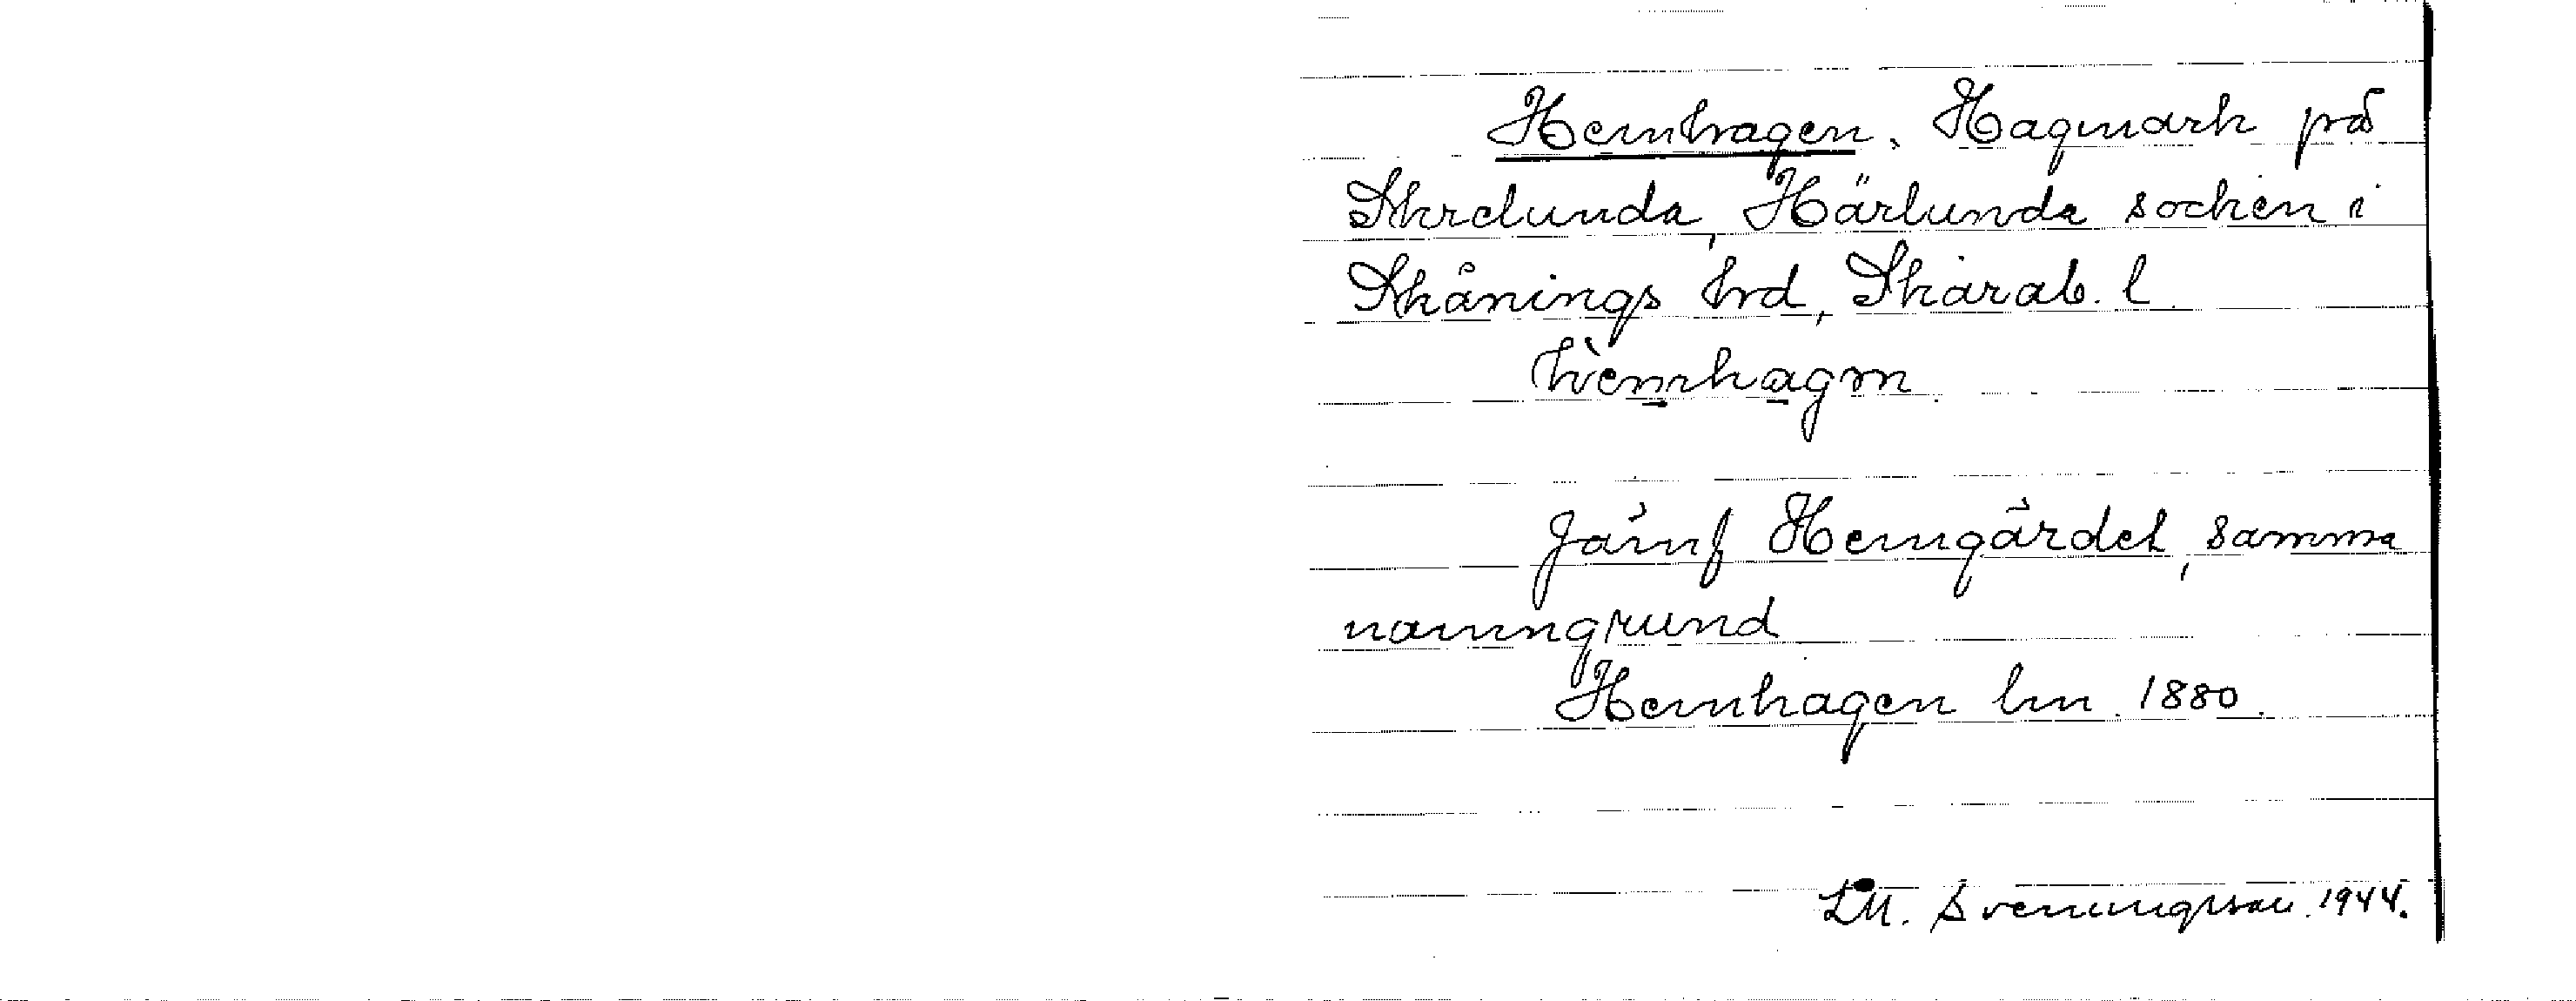 Hemhagen. Hagmark på
Skrelunda, Härlunda socken i
Skånings hrd, Skarab. l.
hèmhagen
Jämf Hemgärdet, samma
namngrund
Hemhagen lm. 1880.
L M. Sveningsson 1944.